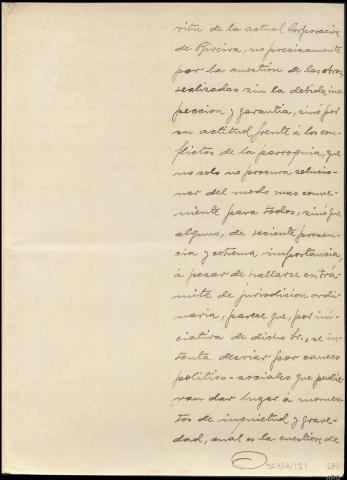 ritu de la actual Corporación
de Riveira, no precisamente
por la cuestión de las obras
realizadas sin la debida ins
pección y garantía, sinó por
su actitud frente á los con-
flictos de la parroquia, que
no solo no procura solucio-
nar del modo mas conve-
niente para todos, sinó que
alguno, de reciente presen-
cia y extrema importancia,
á pesar de hallarse en trá-
mite de jurisdicion ordi-
naria, parece que, por ini-
ciativa de dicho Sr., se in-
tenta desviar por cauces
político-sociales que pudie-
ran dar lugar á momen-
tos de inquietud y grave-
dad, cual es la cuestión de